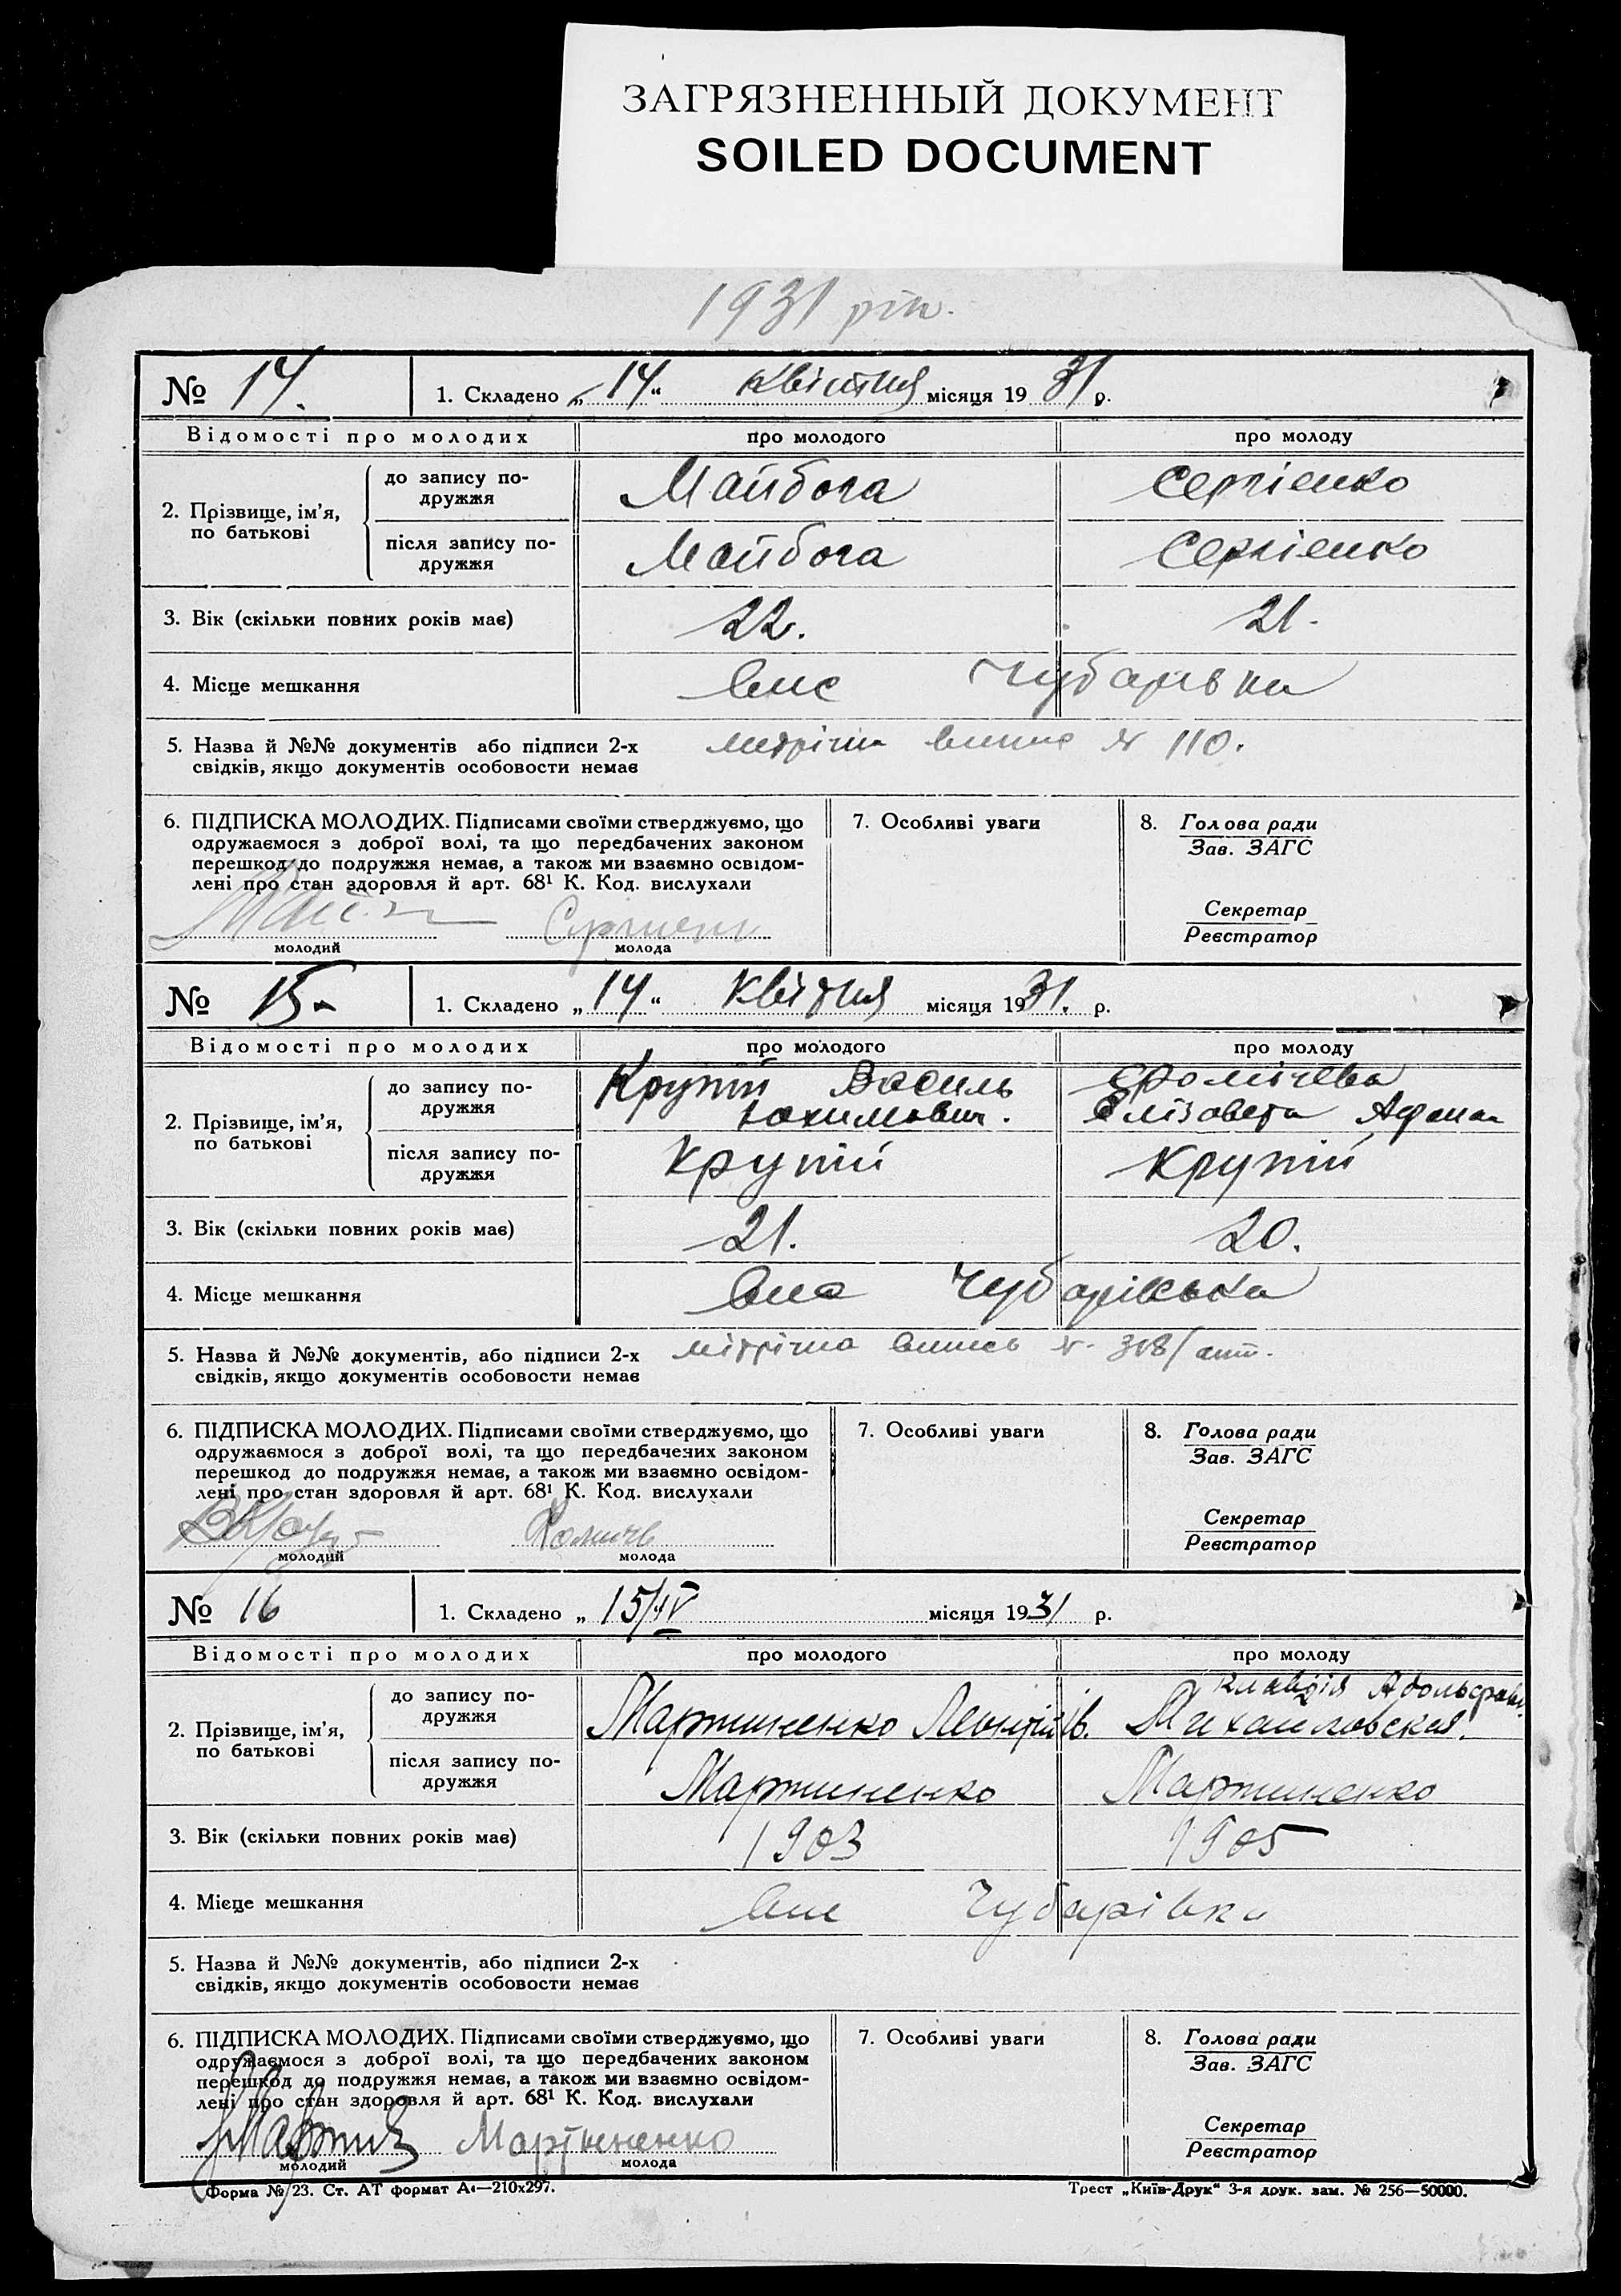 ЗАГРЯЗНЕННЫЙ ДОКУМЕНТ
SOILED DOCUMENT
1931 рік.
№ 14. 1. Складено „14“ квітня місяця 1931 р.
Відомості про молодих про молодого про молоду
2. Прізвище, ім’я, по батькові
до запису по-дружжя Майбога Сергіенко
після запису по-дружжя Майбога Сергіенко
3. Вік (скільки повних років має) 22. 21.
4. Місце мешкання Чубарівка
5. Назва й №№ документів або підписи 2-х № 110.
свідків, якщо документів особовости немає
6. ПІДПИСКА МОЛОДИХ. Підписами своїми стверджуємо, що 7. Особливі уваги 8. Голова ради
одружаємося з доброї волі, та що передбачених законом Зав. ЗАГС
перешкод до подружжя немає, а також ми взаємно освідом-
лені про стан здоровля й арт. 68¹ К. Код. вислухали
Секретар
Реєстратор
молодий молода
№ 15 1. Складено „14“ Квітня місяця 1931. р.
Відомості про молодих про молодого про молоду
2. Прізвище, ім’я, по батькові
до запису по-дружжя Крутій Василь
Юхимович. Єлізавета Афанас
після запису по-дружжя Крутій Крутій
3. Вік (скільки повних років має) 21. 20.
4. Місце мешкання Чубарівська
5. Назва й №№ документів, або підписи 2-х мітрічна випись №
свідків, якщо документів особовости немає
6. ПІДПИСКА МОЛОДИХ. Підписами своїми стверджуємо, що 7. Особливі уваги 8. Голова ради
одружаємося з доброї волі, та що передбачених законом Зав. ЗАГС
перешкод до подружжя немає, а також ми взаємно освідом-
лені про стан здоровля й арт. 68¹ К. Код. вислухали
Секретар
Реєстратор
молодий молода
№ 16 1. Складено „ 15/IV місяця 1931 р.
Відомості про молодих про молодого про молоду
2. Прізвище, ім’я, по батькові
Клавдія Адольфовн.
до запису по-дружжя Мартиненко Леонтій Ів. Михайловская.
після запису по-дружжя Мартиненко Мартиненко
3. Вік (скільки повних років має) 1903 1905
4. Місце мешкання Чубарівка
5. Назва й №№ документів, або підписи 2-х
свідків, якщо документів особовости немає
6. ПІДПИСКА МОЛОДИХ. Підписами своїми стверджуємо, що 7. Особливі уваги 8. Голова ради
одружаємося з доброї волі, та що передбачених законом Зав. ЗАГС
перешкод до подружжя немає, а також ми взаємно освідом-
лені про стан здоровля й арт. 68¹ К. Код. вислухали
Секретар
Реєстратор
Мартиненко
молодий молода
Форма № 23. Ст. АТ формат А4—210х297. Трест „Київ-Друк“ 3-я друк. зам. № 256—50000.